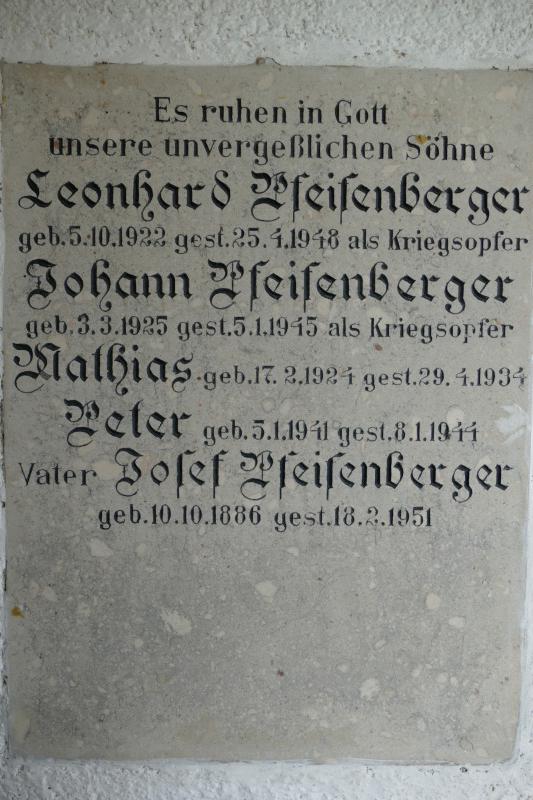 Es ruhen in Gott
unsere unvergeßlichen Söhne
Leonhard Pfeifenberger
geb.5.10.1922 gest.25.4.1948 als Kriegsopfer
Johann Pfeifenberger
geb.3.3.1925 gest.5.1.1945 als Kriegsopfer
Mathias geb.17.2.1924 gest.29.4.1934
Peter geb.5.1.1941 gest.8.1.1944
Vater Josef Pfeifenberger
geb.10.10.1886 gest.18.2.1951